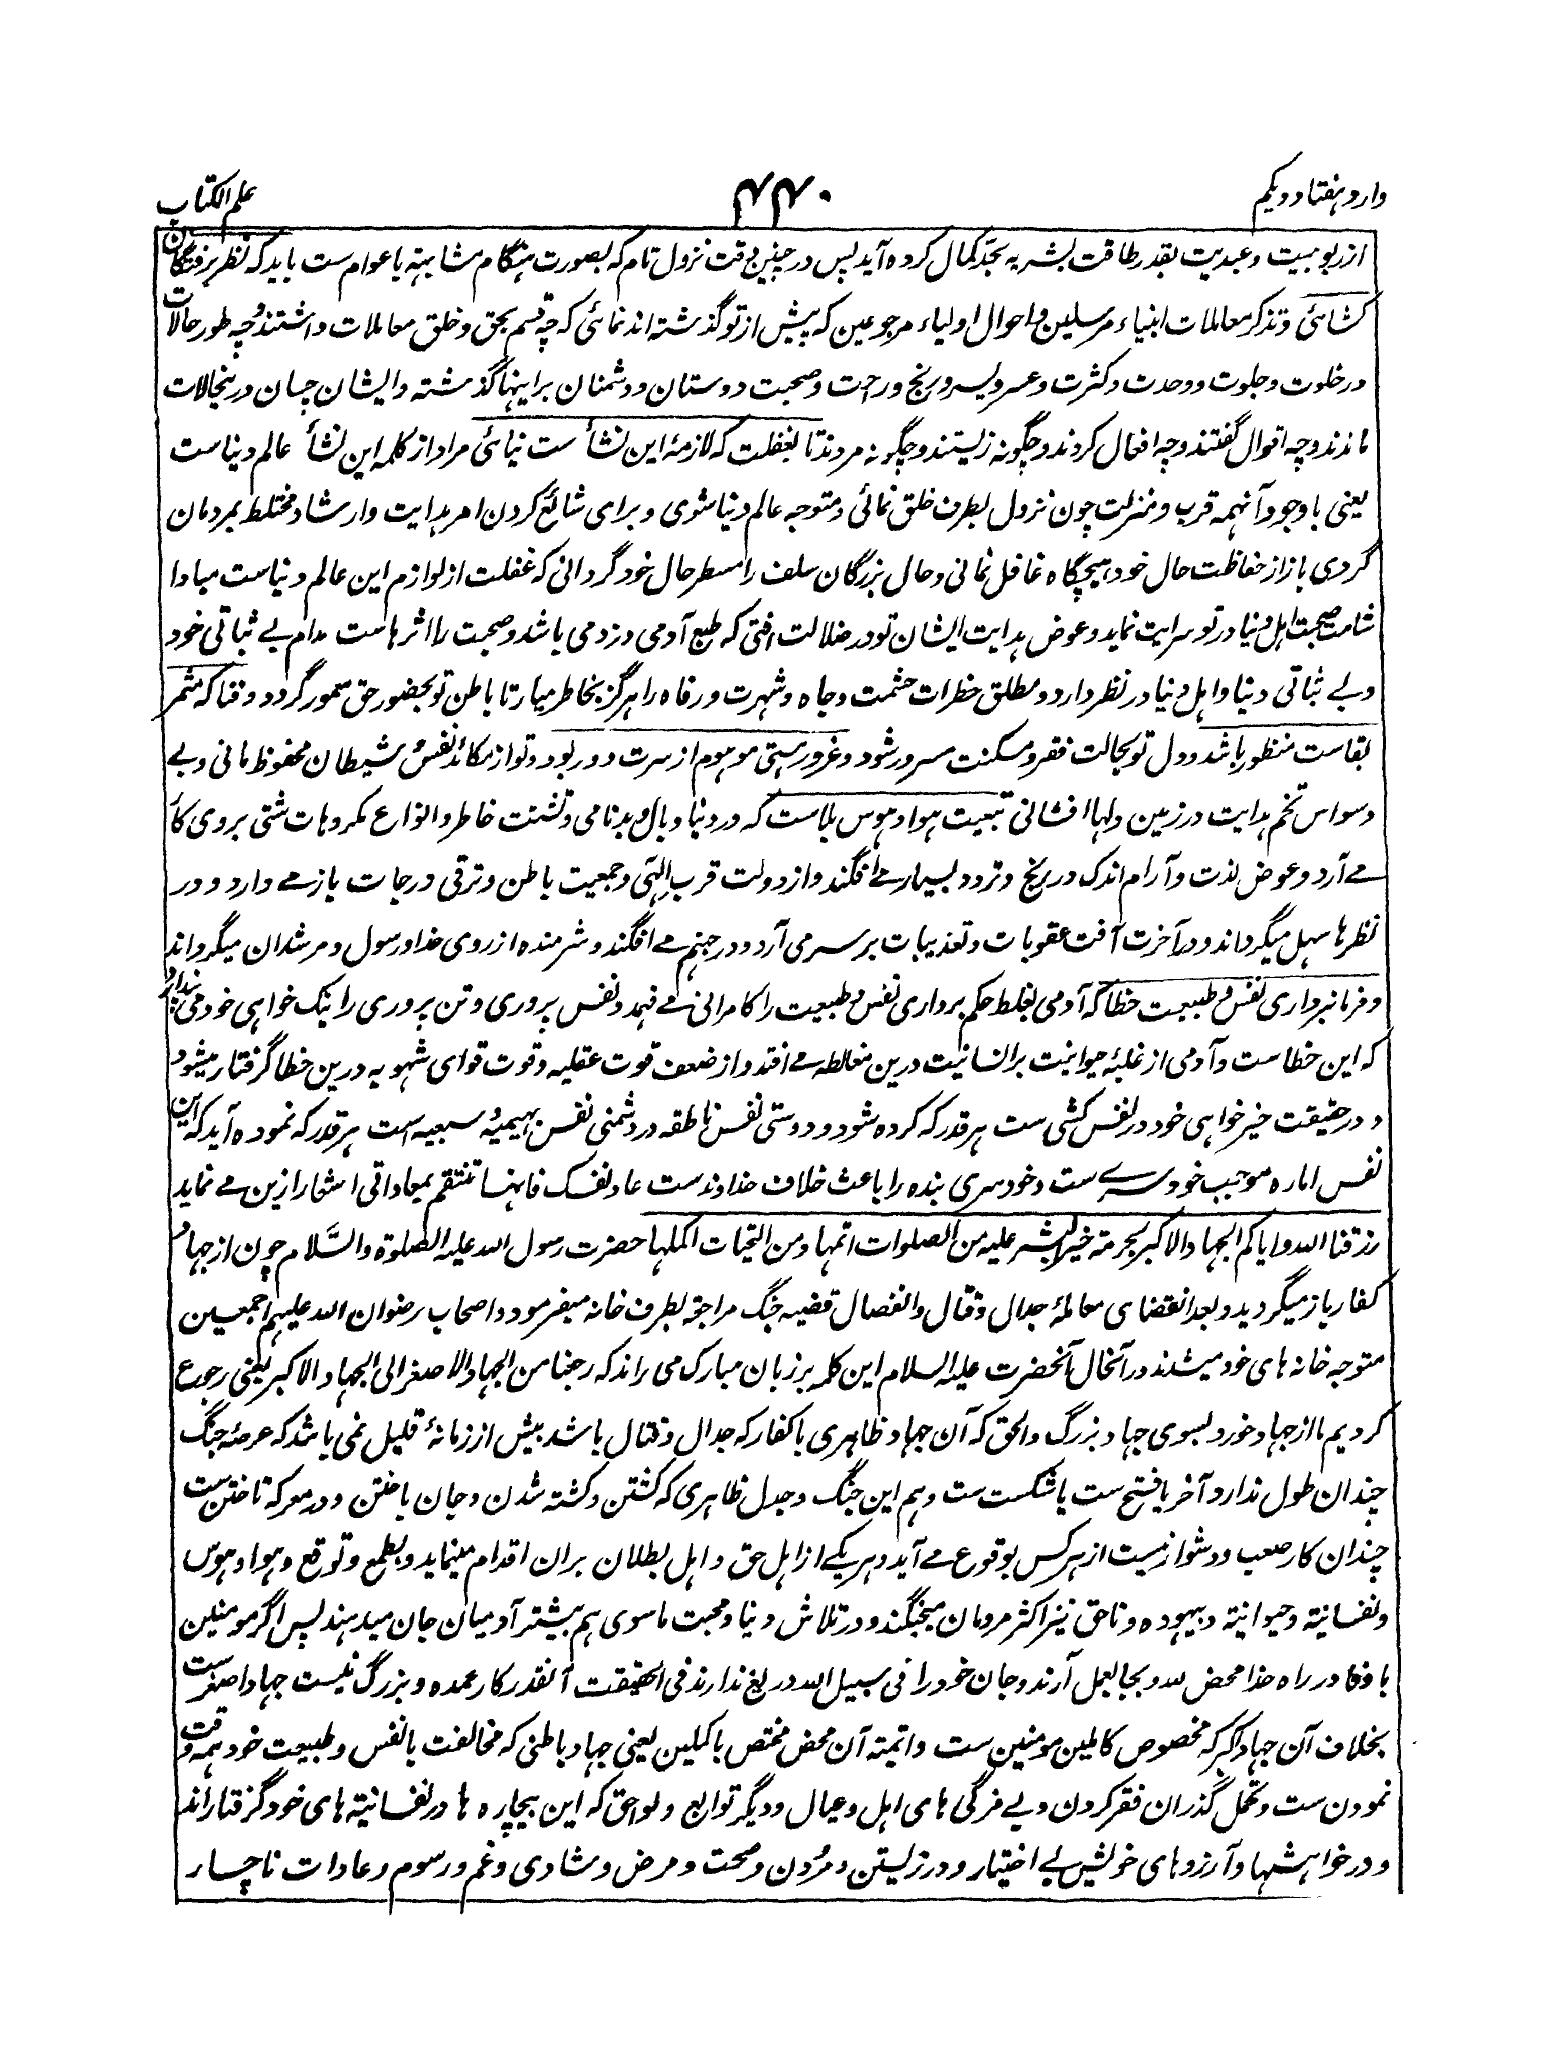 وارد هفتاد ویکم
۴۴۰
علم الکتاب
از ربوبیت و عبدیت بقدر طاقت بشریه بحدّ کمال کرده آید پس در چنین وقت نزول تام که بصورت هنگام مشابهته با عوام ست باید که نظر برفتگان
کشائی و تذکر معاملات انبیاء مرسلین و احوال اولیاء مرجوعین که پیش از تو گذشته اند نمائی که چه قسم بحق و خلق معاملات داشتند و چه طور حالات
در خلوت و جلوت و وحدت و کثرت و عسر و یسر و رنج و راحت و صحبت دوستان و دشمنان بر اینها گذشته و ایشان چسان در ینحالات
ماندند و چه اقوال گفتند و چه افعال کردند و چگونه زیستند و چگونه مردند تا بغفلت که لازمهٔ این نشأ ست نیائی مراد از کلمه این نشأ عالم دنیاست
یعنی با وجود آنهمه قرب و منزلت چون نزول بطرف خلق نمائی و متوجه عالم دنیا شوی و برای شائع کردن امر هدایت و ارشاد مختلط بمردمان
گردی باز از حفاظت حال خود هیچگاه غافل نمانی و حال بزرگان سلف را مسطر حال خود گردانی که غفلت از لوازم این عالم دنیاست مبادا
شامت صحبت اهل دنیا در تو سرایت نماید و عوض هدایت ایشان تو در ضلالت افتی که طبع آدمی دزد می باشد و صحبت را اثرهاست مدام بے ثباتی خود
و بے ثباتی دنیا و اهل دنیا در نظر دار و مطلق خطرات حشمت و جاه و شهرت و رفاه را هرگز بخاطر میار تا باطن تو بحضور حق معمور گردد و فنا که مثمر
بقاست منظور باشد و دل تو بحالت فقر و مسکنت مسرور شود و غرور هستی موهوم از سرت دور بود و تو از مکائد نفس و شیطان محفوظ مانی و بے
وسواس تخم هدایت در زمین دلها افشانی تبعیت هوا و هوس بلاست که در دنیا وبال و بدنامی و تشتت خاطر و انواع مکروهات شتی بروی کار
مے آرد و عوض لذت و آرام اندک در رنج و تردد بسیار مے افگند و از دولت قرب الٰهی و جمعیت باطن و ترقی درجات باز مے دارد و در
نظرها سهل میگرداند و در آخرت آفت عقوبات و تعذیبات بر سر می آرد و در جهنم مے افگند و شرمنده از روی خدا و رسول و مرشدان میگرداند
و فرمانبرداری نفس و طبیعت خطا که آدمی بغلط حکم برداری نفس و طبیعت را کامرانی مے فهمد و نفس پروری و تن پروری را نیک خواهی خود می پندارد
که این خطاست و آدمی از غلبهٔ حیوانیت بر انسانیت درین مغالطه مے افتد و از ضعف قوت عقلیه و قوت قوای شهویه درین خطا گرفتار میشود
و در حقیقت خیر خواهی خود در نفس کشی ست هر قدر که کرده شود و دوستی نفس ناطقه در دشمنی نفس بهیمیهٔ سبعیه است هر قدر که نموده آید که این
نفس اماره موجب خود سرے ست و خودسری بنده را باعث خلاف خداوند ست عاد نفسک فانها تنتقم بمعاداتی اشعار ازین مے نماید
رزقنا الله وایاکم الجهاد الاکبر بحرمة خیر البشر علیه من الصلوات اتمها و من التحیات اکملها حضرت رسول الله علیه الصلوة والسّلام چون از جهاد
کفار باز میگردید و بعد انقضای معاملهٔ جدال و قتال و انفصال قضیه جنگ مراجعة بطرف خانه میفرمود و اصحاب رضوان الله علیهم اجمعین
متوجه خانه های خود میشدند در آنحال آنحضرت علیه السلام این کلمه بر زبان مبارک می راند که رجعنا من الجهاد الاصغر الی الجهاد الاکبر یعنی رجوع
کردیم ما از جهاد خورد بسوی جهاد بزرگ والحق که آن جهاد ظاهری با کفار که جدال و قتال باشد بیش از زمانهٔ قلیل نمی باشد که عرصهٔ جنگ
چندان طول ندارد آخر یا فتح ست یا شکست ست و هم این جنگ و جدل ظاهری که کشتن و کشته شدن و جان باختن و در معرکه تاختن ست
چندان کار صعب و دشوار نیست از هر کس بوقوع مے آید و هر یکے از اهل حق و اهل بطلان بران اقدام مینماید و بطمع و توقع و هوا و هوس
و نفسانیة و حیوانیة و بیهوده و ناحق نیز اکثر مردمان میجنگند و در تلاش دنیا و محبت ماسوی هم بیشتر آدمیان جان میدهند پس اگر مومنین
باوفا در راه خدا محض لله و بجا بعمل آرند و جان خود را فی سبیل الله دریغ ندارند فی الحقیقت آنقدر کار عمده و بزرگ نیست جهاد اصغر ست
بخلاف آن جهاد اکبر که مخصوص کاملین مومنین ست و اتمیة آن محض مختص باکملین یعنی جهاد باطنی که مخالفت بانفس و طبیعت خود همه وقت
نمودن ست و تحمل گذران فقر کردن و بے مزگی های اهل و عیال و دیگر توابع و لواحق که این بیچاره ها در نفسانیته های خود گرفتار اند
و در خواهشها و آرزوهای خویش بے اختیار و در زیستن و مُردن و صحت و مرض و شادی و غم و رسوم و عادات ناچار